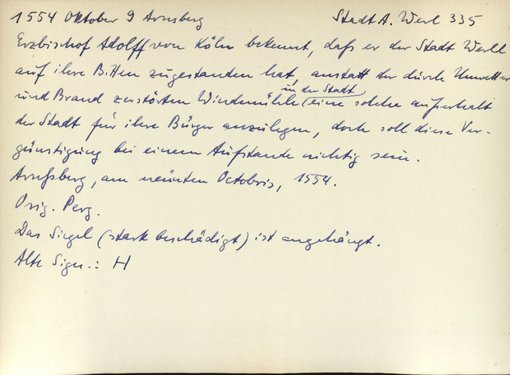 1554 Oktober 9 Arnsberg StadtA. Werl 335
Erzbischof Adolff von Köln bekennt, daß er der Stadt Werll
auf ihre Bitten zugestanden hat, anstatt der durch Unwetter
in der Stadt
und Brand zerstörten Windemühle (eine solche außerhalb
der Stadt für ihre Bürger anzulegen, doch soll diese Ver-
günstigung bei einem Aufstande nichtig sein.
Arnßberg, am neünten Octobris, 1554.
Orig. Perg.
Das Siegel (stark beschädigt) ist angehängt.
Alte Sign.: H